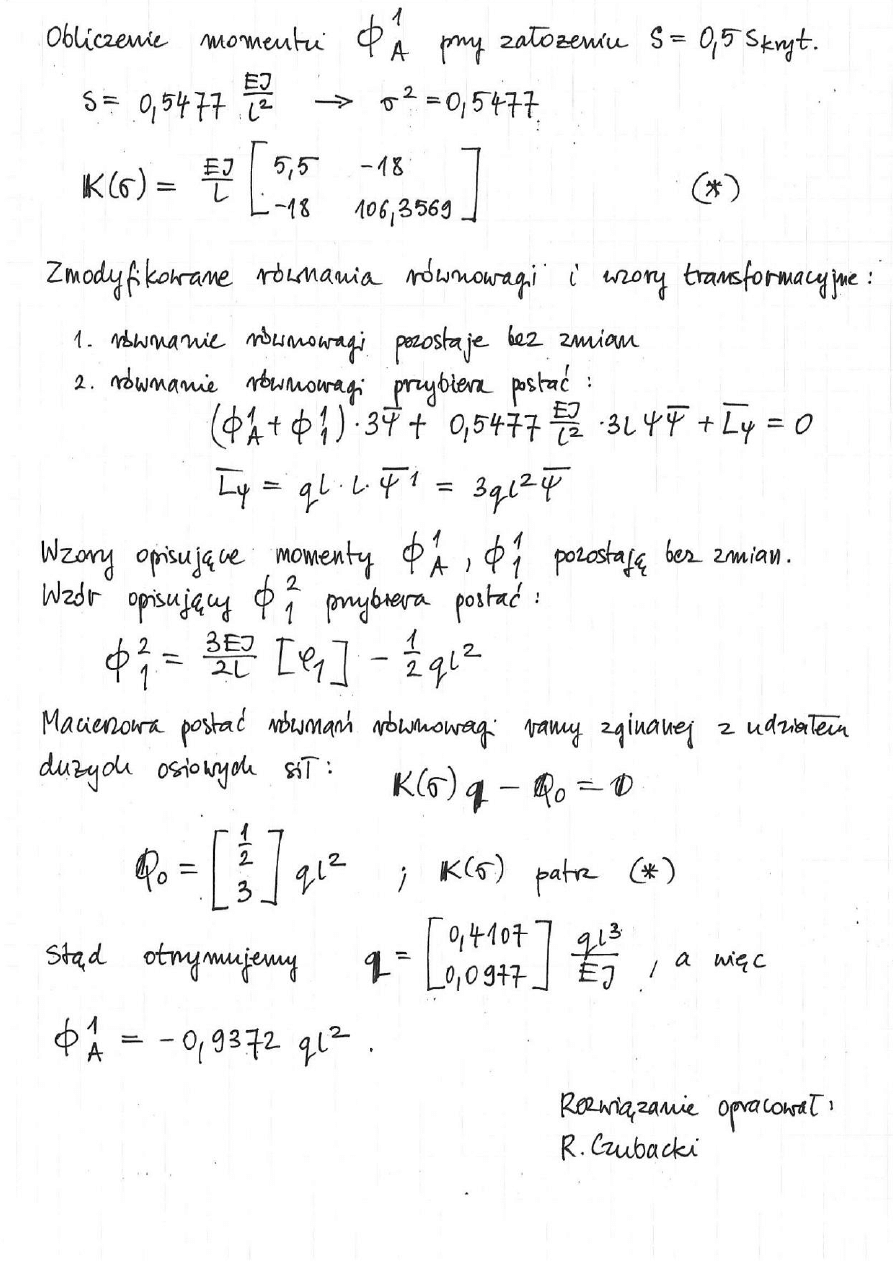 Obliczenie momentu Φ_A^1 przy założeniu S = 0,5 Skryt.
S = 0,5477 EJ/l² → σ² = 0,5477
K(σ) = EJ/L [5,5 -18; -18 106,3569] (*)
Zmodyfikowane równania równowagi i wzory transformacyjne:
1. równanie równowagi pozostaje bez zmian
2. równanie równowagi przybiera postać:
(Φ_A^1 + Φ_1^1)·3Ψ̅ + 0,5477 EJ/l² ·3L ΨΨ̅ + L̅ψ = 0
L̅ψ = qL·L·Ψ̅^1 = 3ql²Ψ̅
Wzory opisujące momenty Φ_A^1, Φ_1^1 pozostają bez zmian.
Wzór opisujący Φ_1^2 przybiera postać:
Φ_1^2 = 3EJ/2L [φ₁] - 1/2 ql²
Macierzowa postać równań równowagi ramy zginanej z udziałem
dużych osiowych sił: K(σ) q - Q₀ = 0
Q₀ = [1/2; 3] ql² ; K(σ) patrz (*)
Stąd otrzymujemy q = [0,4107; 0,0977] ql³/EJ, a więc
Φ_A^1 = -0,9372 ql².
Rozwiązanie opracował:
R. Czubacki